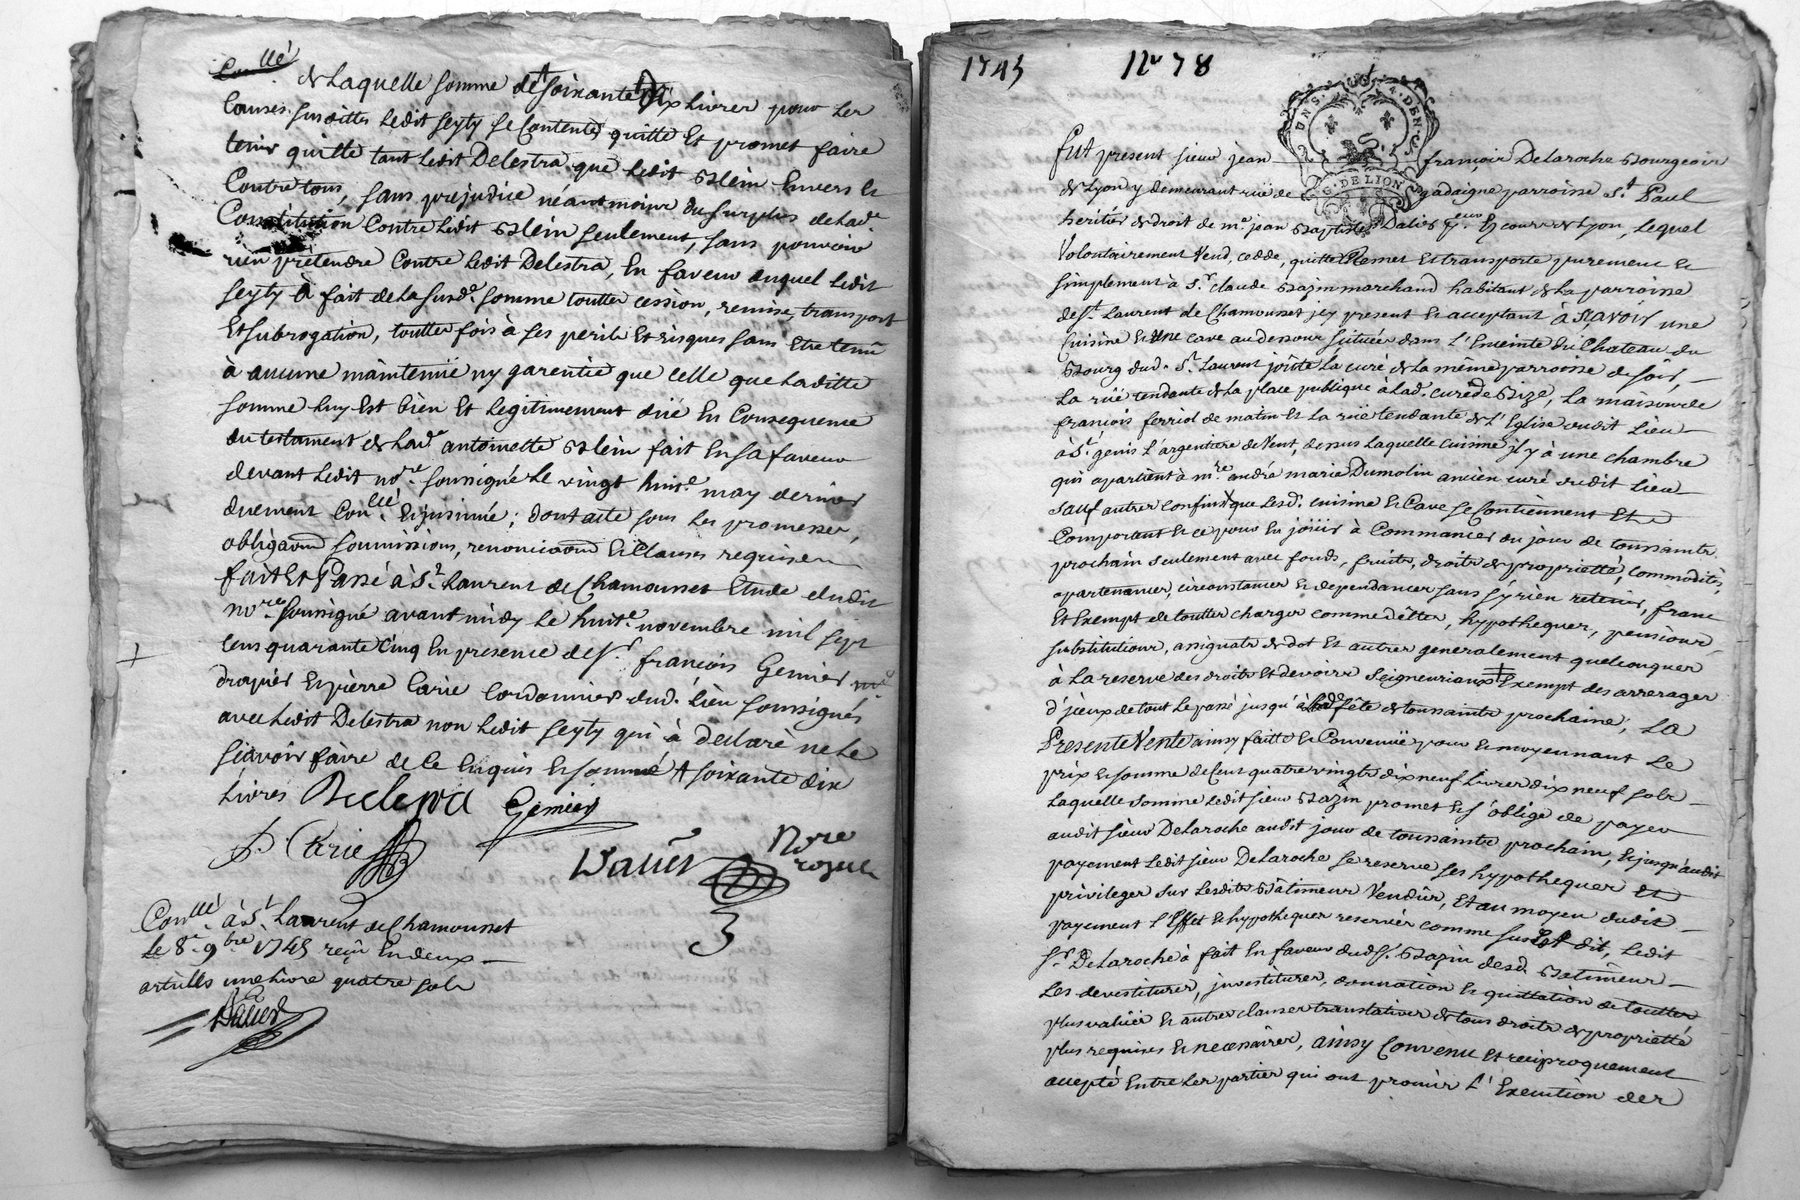 Conllé
& Laquelle somme de soixante Dix Livres pour les
Causes susdittes ledit seyty se Contente, quitte Et promet faire
tenir quitte tant ledit Delestra que ledit Blein Envers Et
Contre tous, sans prejudice néantmoins du surplus de lade
Constitution Contre ledit Blein seulement, sans pouvoir
rien prétendre Contre ledit Delestra, En faveur duquel ledit
seyty à fait de la susde somme toutte cession, remise, transport
Et subrogation, touttes fois à ses perils Et risques sans Etre tenû
à aucune maintenüe ny garentie que Celle que laditte
somme luy Est bien Et legitimement düe En Consequence
du testament de lade antoinette Blein fait En sa faveur
devant ledit nore soussigné Le vingt huite may dernier
duement Conllé Et jnsinué; dont acte sous les promesses,
obligaons soumissions, renonciaons Et Clauses requises
fait Et Passé à St Laurent de Chamousset Etude dudit
nore soussigné avant midy Le huite novembre mil sept
cens quarante Cinq En presence de Sr françois Genier
drapier Et pierre Carie Cordonnier dud. Lieu soussignés
avec ledit Delestra non ledit seyty qui à declaré ne le
sçavoir faire de ce Enquis Et sommé + soixante dix
Livres Delestra Genier
P. Carie
Daliés Nore royal
Conllé à St Laurent de Chamousset
Le 8e 9bre 1745 reçû En deux
articles une livre quatre sols
Daliés
3
1745 No 78
UN S. 4. DEN.
G. DE LION
Fut present sieur jean françois DeLaroche Bourgeois
de Lyon y demeurant rüe de gadaigne parroisse St Paul
heritier de droit de me jean Baptiste Daliés Es cours de Lyon, Lequel
Volontairement Vend, cedde, quitte Remet Et transporte purement Et
simplement à Sr claude Bazin marchand habitant de la parroisse
de St Laurent de Chamousset jcy present Et acceptant à Sçavoir une
Cuisine Et Une cave au dessous situées dans L'Enceinte du Chateau du
Bourg dud. St Laurent jointe La cure de La même parroisse de soir,
La rüe tendante de La place publique à Lad. cure de Bize, La maison de
françois ferriol de matin Et La rüe tendante de L'Eglise dudit Lieu
à St genis L'argentiere de Vent, dessus laquelle cuisine jl y à une chambre
qui apartient à mre andré marie Dumolin ancien curé dudit Lieu
sauf autres confins que lesd. cuisine Et Cave se Contiennent Et se
Comportent Et ce pour En joüir à Commancer du jour de toussaints
prochain seulement avec fonds, fruits, droits de proprietté, commodités,
apartenances, circonstances Et dependances sans s'y rien retenir, franc
Et Exempt de touttes charges comme dettes, hypotheques, pensions,
substitutions, assignats de dot Et autres generalement quelconques
à La reserve des droits Et devoirs seigneuriaux Exempt des arrerages
d'jceux de tout Le passé jusqu'à lad. fête de toussaints prochaine; La
Presente Vente ainsy faitte Et Convenuë pour Et moyennant Le
prix Et somme de Cent quatre vingts dix neuf Livres dix neuf sols
Laquelle somme ledit sieur Bazin promet Et s'oblige de payer
audit sieur DeLaroche audit jour de toussaints prochain, Et jusqu'audit
payement ledit sieur DeLaroche se reserve ses hypotheques Et
privileges sur lesdits Bâtimens Vendus, Et au moyen dudit
payement L'Effet Et hypotheques reservés comme sus Est dit, ledit
Sr DeLaroche à fait En faveur dud. Sr. Bazin desd. Batimens
Les devestitures, jnvestitures, donnation Et quittation de touttes
plus valüe Et autres clauses translatives de tous droits de proprietté
plus requises Et necessaires, ainsy Convenu Et reciproquement
accepté Entre Les parties qui ont promis L'Execution des